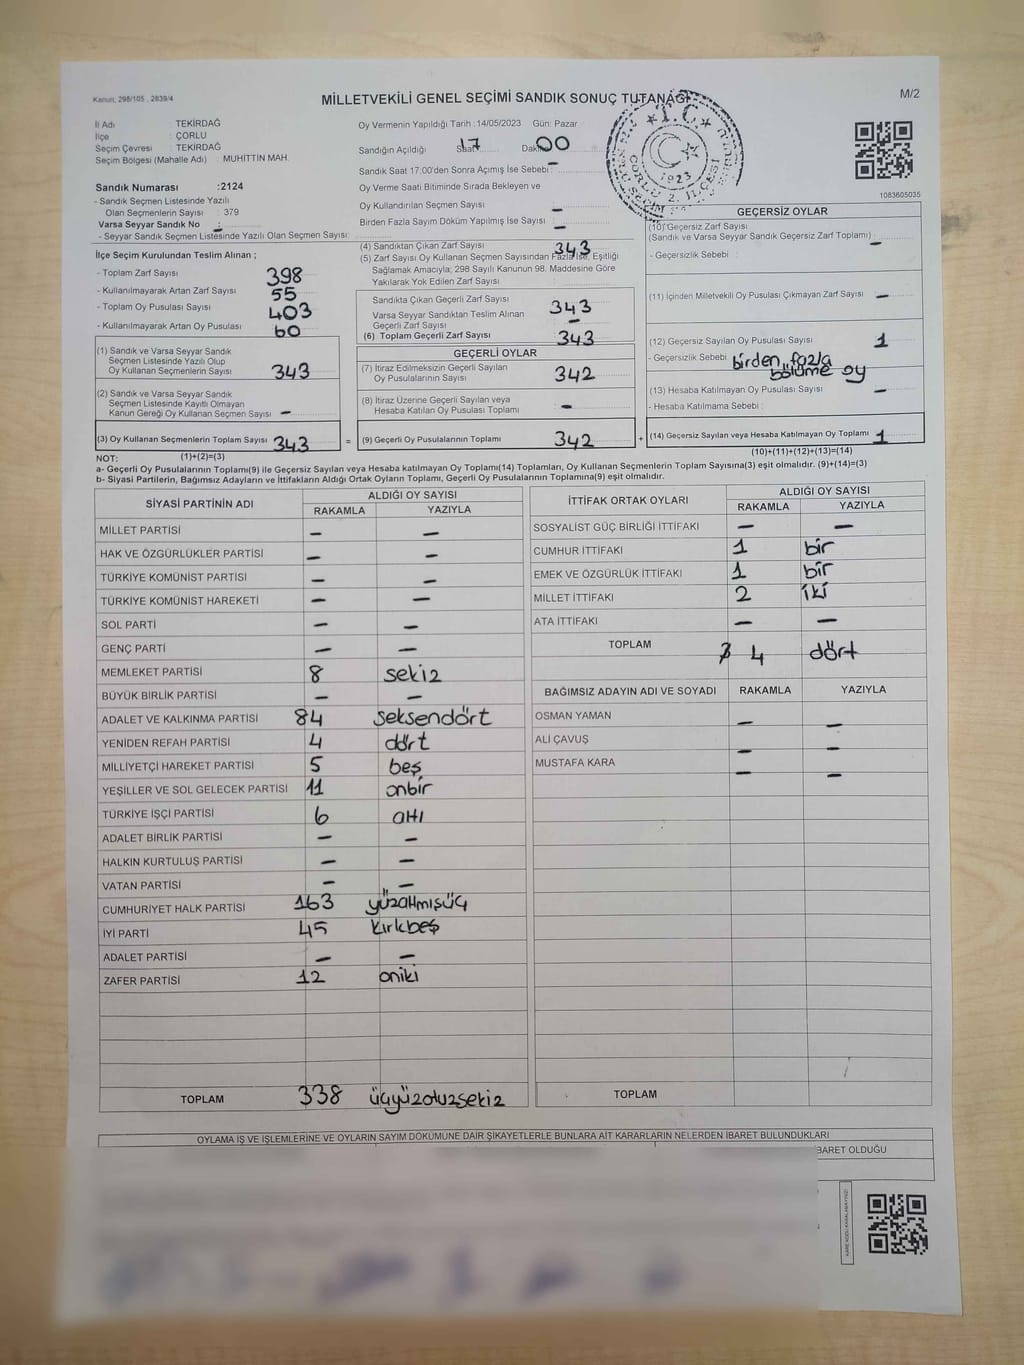 Kanun; 298/105 , 2839/4
MİLLETVEKİLİ GENEL SEÇİMİ SANDIK SONUÇ TUTANAĞI
M/2
İl Adı : TEKİRDAĞ
İlçe : ÇORLU
Seçim Çevresi : TEKİRDAĞ
Seçim Bölgesi (Mahalle Adı) : MUHİTTİN MAH.
Sandık Numarası :2124
- Sandık Seçmen Listesinde Yazılı
Olan Seçmenlerin Sayısı : 379
Varsa Seyyar Sandık No : -
- Seyyar Sandık Seçmen Listesinde Yazılı Olan Seçmen Sayısı:
İlçe Seçim Kurulundan Teslim Alınan ;
- Toplam Zarf Sayısı : 398
- Kullanılmayarak Artan Zarf Sayısı : 55
- Toplam Oy Pusulası Sayısı : 403
- Kullanılmayarak Artan Oy Pusulası : 60
(1) Sandık ve Varsa Seyyar Sandık
Seçmen Listesinde Yazılı Olup
Oy Kullanan Seçmenlerin Sayısı : 343
(2) Sandık ve Varsa Seyyar Sandık
Seçmen Listesinde Kayıtlı Olmayan
Kanun Gereği Oy Kullanan Seçmen Sayısı : -
(3) Oy Kullanan Seçmenlerin Toplam Sayısı : 343
Oy Vermenin Yapıldığı Tarih :14/05/2023 Gün: Pazar
Sandığın Açıldığı Saat 17 Dakika 00
Sandık Saat 17:00'den Sonra Açımış İse Sebebi : -
Oy Verme Saati Bitiminde Sırada Bekleyen ve
Oy Kullandırılan Seçmen Sayısı : -
Birden Fazla Sayım Döküm Yapılmış İse Sayısı : -
(4) Sandıktan Çıkan Zarf Sayısı : 343
(5) Zarf Sayısı Oy Kullanan Seçmen Sayısından Fazla İse, Eşitliği
Sağlamak Amacıyla; 298 Sayılı Kanunun 98. Maddesine Göre
Yakılarak Yok Edilen Zarf Sayısı :
Sandıkta Çıkan Geçerli Zarf Sayısı : 343
Varsa Seyyar Sandıktan Teslim Alınan
Geçerli Zarf Sayısı : -
(6) Toplam Geçerli Zarf Sayısı : 343
GEÇERLİ OYLAR
(7) İtiraz Edilmeksizin Geçerli Sayılan
Oy Pusulalarının Sayısı : 342
(8) İtiraz Üzerine Geçerli Sayılan veya
Hesaba Katılan Oy Pusulası Toplamı : -
= (9) Geçerli Oy Pusulalarının Toplamı : 342
T.C.
1923
ÇORLU 2. İLÇESİ
1083605035
GEÇERSİZ OYLAR
(10) Geçersiz Zarf Sayısı
(Sandık ve Varsa Seyyar Sandık Geçersiz Zarf Toplamı) : -
- Geçersizlik Sebebi :
(11) İçinden Milletvekili Oy Pusulası Çıkmayan Zarf Sayısı : -
(12) Geçersiz Sayılan Oy Pusulası Sayısı : 1
- Geçersizlik Sebebi : birden fazla
bölüme oy
(13) Hesaba Katılmayan Oy Pusulası Sayısı : -
- Hesaba Katılmama Sebebi :
+ (14) Geçersiz Sayılan veya Hesaba Katılmayan Oy Toplamı : 1
NOT: (1)+(2)=(3)
(10)+(11)+(12)+(13)=(14)
a- Geçerli Oy Pusulalarının Toplamı(9) ile Geçersiz Sayılan veya Hesaba katılmayan Oy Toplamı(14) Toplamları, Oy Kullanan Seçmenlerin Toplam Sayısına(3) eşit olmalıdır. (9)+(14)=(3)
b- Siyasi Partilerin, Bağımsız Adayların ve İttifakların Aldığı Ortak Oyların Toplamı, Geçerli Oy Pusulalarının Toplamına(9) eşit olmalıdır.
SİYASİ PARTİNİN ADI ALDIĞI OY SAYISI
RAKAMLA YAZIYLA
MİLLET PARTİSİ - -
HAK VE ÖZGÜRLÜKLER PARTİSİ - -
TÜRKİYE KOMÜNİST PARTİSİ - -
TÜRKİYE KOMÜNİST HAREKETİ - -
SOL PARTİ - -
GENÇ PARTİ - -
MEMLEKET PARTİSİ 8 sekiz
BÜYÜK BİRLİK PARTİSİ - -
ADALET VE KALKINMA PARTİSİ 84 seksendört
YENİDEN REFAH PARTİSİ 4 dört
MİLLİYETÇİ HAREKET PARTİSİ 5 beş
YEŞİLLER VE SOL GELECEK PARTİSİ 11 onbir
TÜRKİYE İŞÇİ PARTİSİ 6 altı
ADALET BİRLİK PARTİSİ - -
HALKIN KURTULUŞ PARTİSİ - -
VATAN PARTİSİ - -
CUMHURİYET HALK PARTİSİ 163 yüzaltmışüç
İYİ PARTİ 45 kırkbeş
ADALET PARTİSİ - -
ZAFER PARTİSİ 12 oniki
TOPLAM 338 üçyüzotuzsekiz
İTTİFAK ORTAK OYLARI ALDIĞI OY SAYISI
RAKAMLA YAZIYLA
SOSYALİST GÜÇ BİRLİĞİ İTTİFAKI - -
CUMHUR İTTİFAKI 1 bir
EMEK VE ÖZGÜRLÜK İTTİFAKI 1 bir
MİLLET İTTİFAKI 2 iki
ATA İTTİFAKI - -
TOPLAM 4 dört
BAĞIMSIZ ADAYIN ADI VE SOYADI RAKAMLA YAZIYLA
OSMAN YAMAN - -
ALİ ÇAVUŞ - -
MUSTAFA KARA - -
TOPLAM
OYLAMA İŞ VE İŞLEMLERİNE VE OYLARIN SAYIM DÖKÜMÜNE DAİR ŞİKAYETLERLE BUNLARA AİT KARARLARIN NELERDEN İBARET BULUNDUKLARI
İBARET OLDUĞU